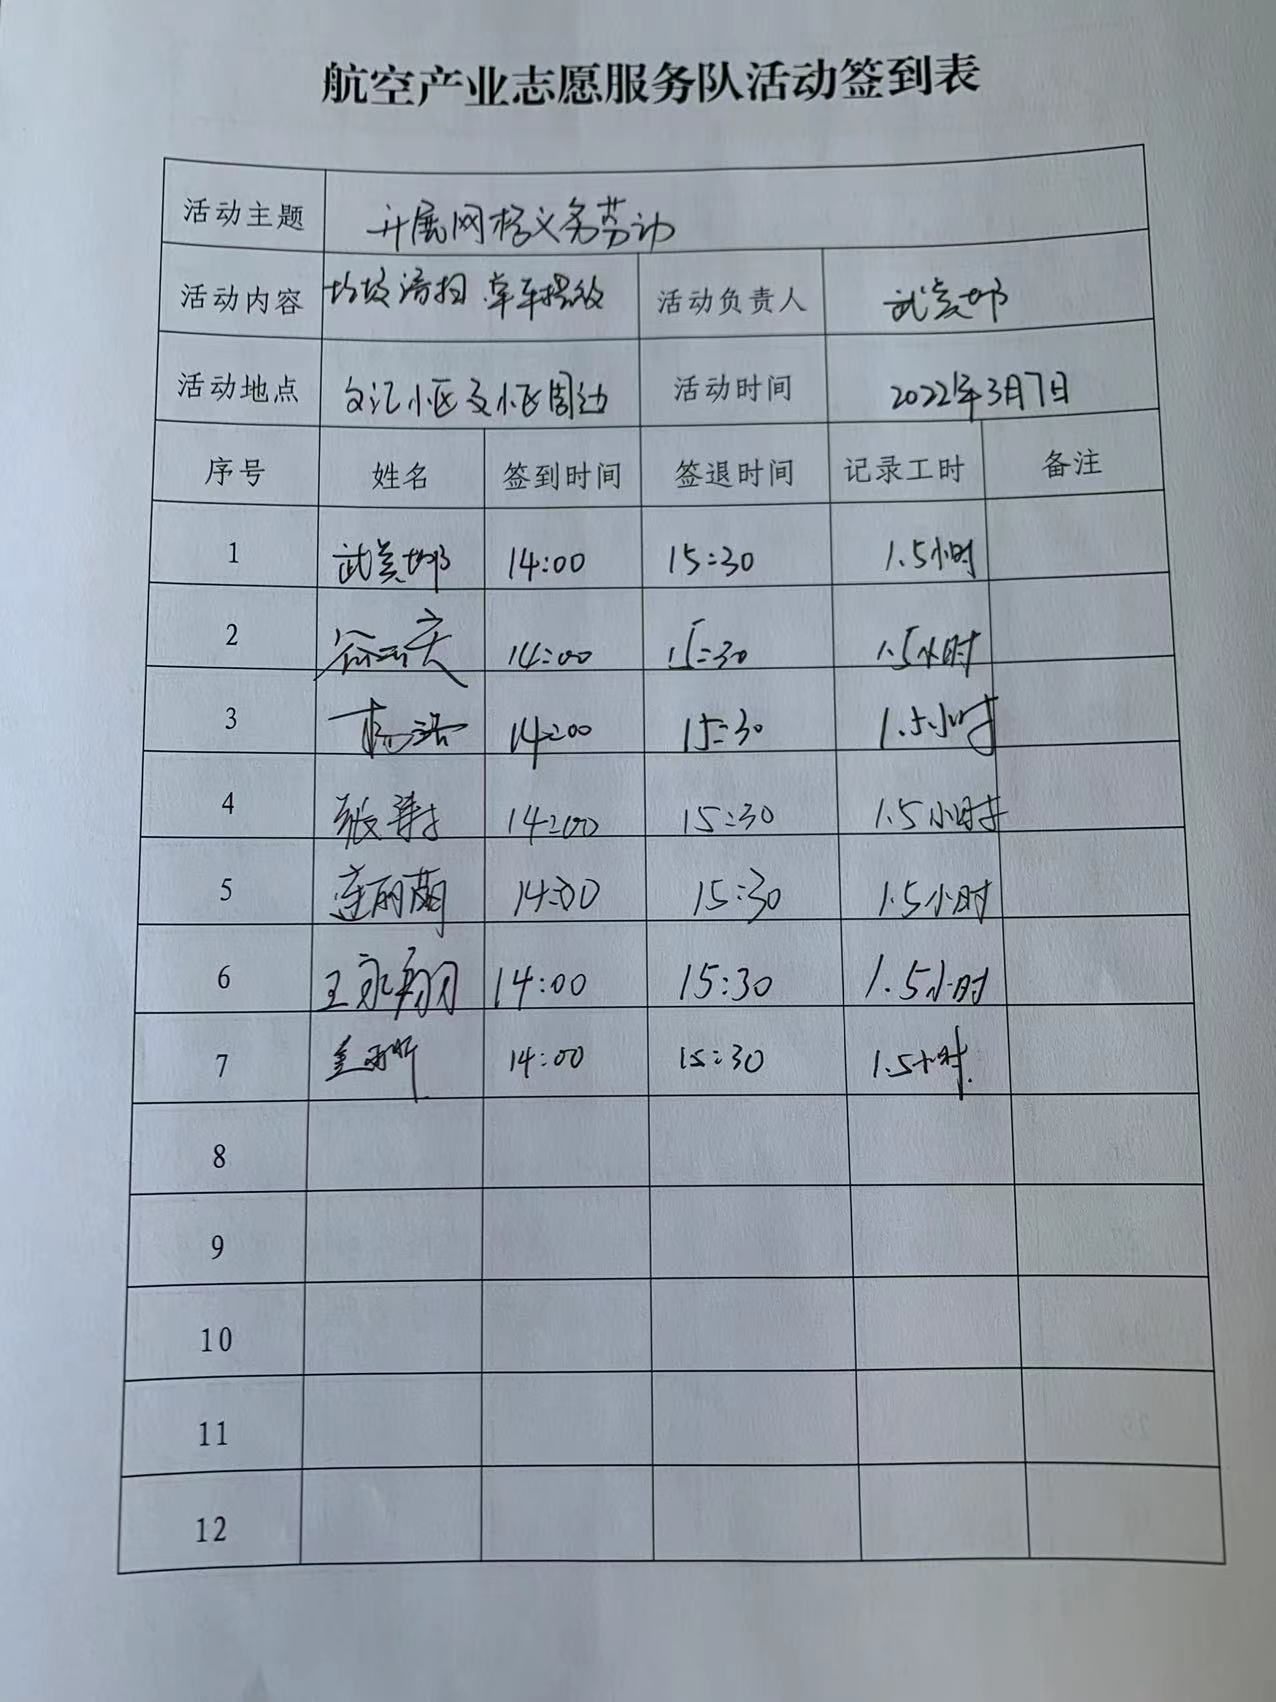 航空产业志愿服务队活动签到表
活动主题 开展网格义务劳动
活动内容 垃圾清扫 单车摆放 活动负责人 武
活动地点 文汇小区及小区周边 活动时间 2022年3月7日
序号 姓名 签到时间 签退时间 记录工时 备注
1 武 14:00 15:30 1.5小时
2 14:00 15:30 1.5小时
3 杨浩 14:00 15:30 1.5小时
4 张 14:00 15:30 1.5小时
5 连丽萌 14:00 15:30 1.5小时
6 王永翔 14:00 15:30 1.5小时
7 14:00 15:30 1.5小时
8
9
10
11
12